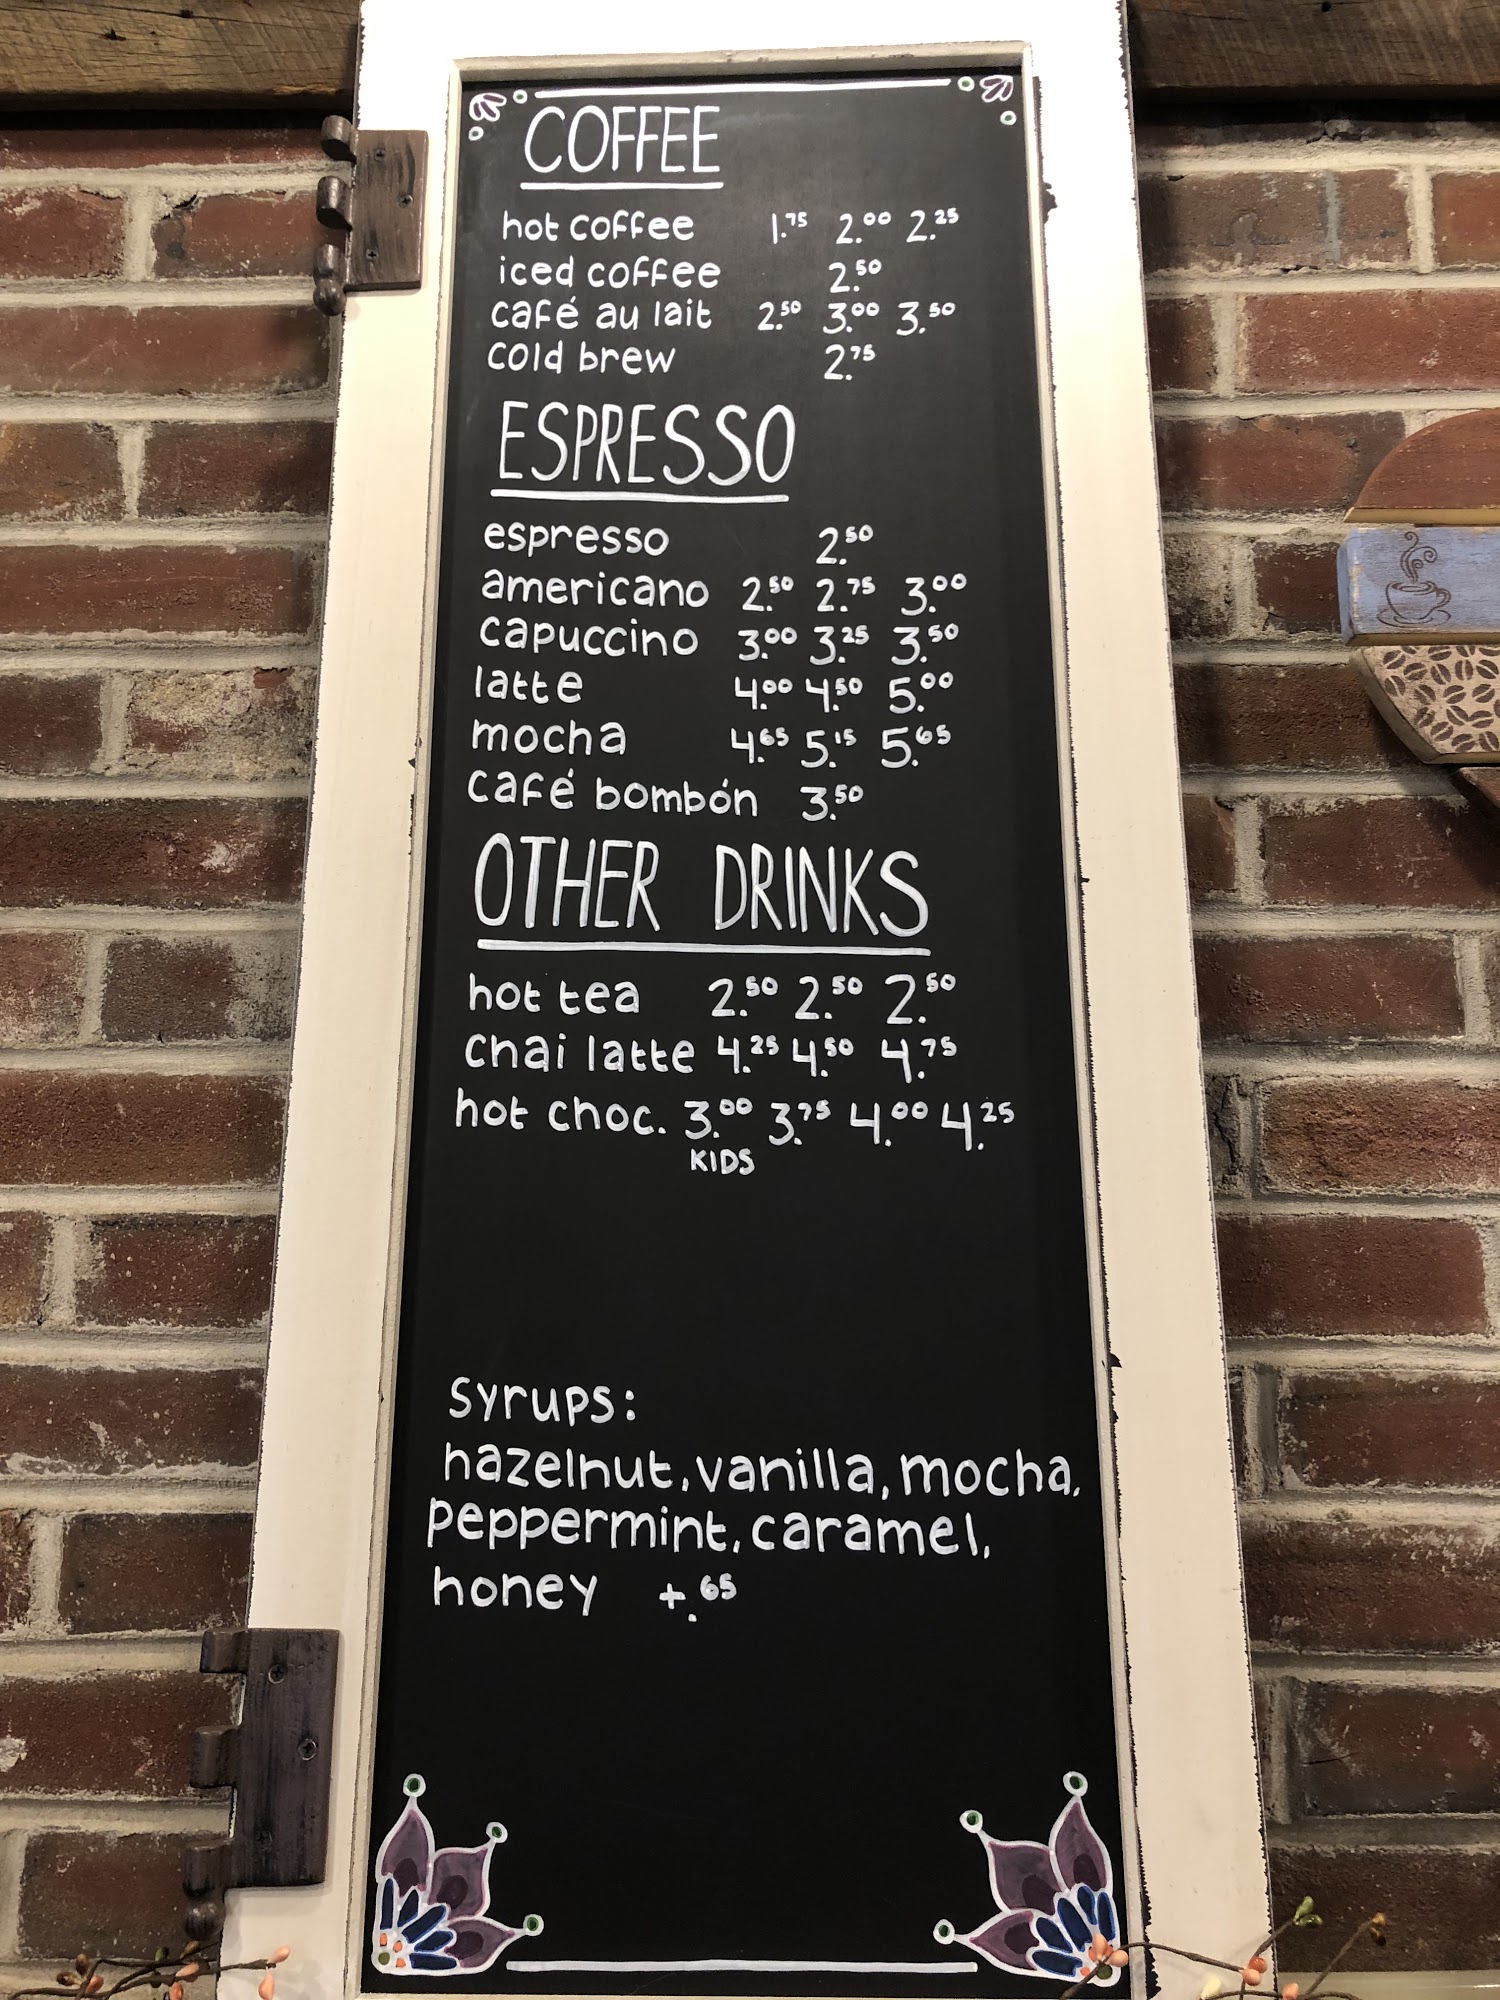 COFFEE
hot coffee 1.75 2.00 2.25
iced coffee 2.50
café au lait 2.50 3.00 3.50
cold brew 2.75
ESPRESSO
espresso 2.50
americano 2.50 2.75 3.00
capuccino 3.00 3.25 3.50
latte 4.00 4.50 5.00
mocha 4.65 5.15 5.65
café bombón 3.50
OTHER DRINKS
hot tea 2.50 2.50 2.50
chai latte 4.25 4.50 4.75
hot choc. 3.00 3.75 4.00 4.25
KIDS
syrups:
hazelnut, vanilla, mocha,
peppermint, caramel,
honey +.65